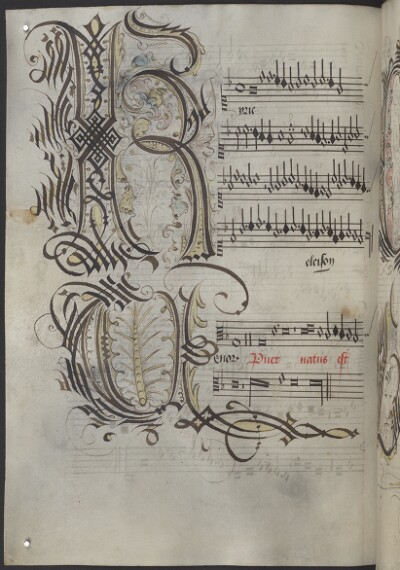 Kyrie
eleison
Tenor Puer natus est